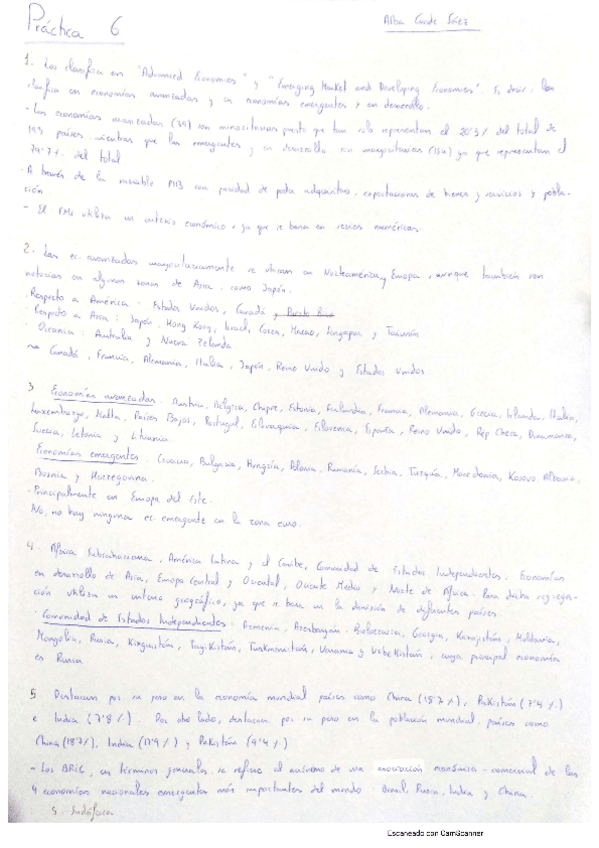 Práctica 6
Alba Conde Sáez
1. Los clasifica en "Advanced Economies" y "Emerging Market and Developing Economies". Es decir, las
clasifica en economías avanzadas y en economías emergentes y en desarrollo.
- Las economías avanzadas (39) son minoritarias puesto que tan solo representan el 20'3% del total de
193 países mientras que las emergentes y en desarrollo son mayoritarias (154) ya que representan el
79'7% del total
- A través de la variable PIB con paridad de poder adquisitivo, exportaciones de bienes y servicios y pobla-
ción
- El FMI utiliza un criterio económico, ya que se basa en numéricas.
2. Las ec. avanzadas mayoritariamente se ubican en Norteamérica y Europa, aunque también son
notorias en algunas zonas de Asia, como Japón.
- Respecto a América: Estados Unidos, Canadá y Puerto Rico
- Respecto a Asia: Japón, Hong Kong, Israel, Corea, Macao, Singapur y Taiwán
- Oceanía: Australia y Nueva Zelanda
Canadá, Francia, Alemania, Italia, Japón, Reino Unido y Estados Unidos
3 Economías avanzadas: Austria, Bélgica, Chipre, Estonia, Finlandia, Francia, Alemania, Grecia, Irlanda, Italia,
Luxemburgo, Malta, Países Bajos, Portugal, Eslovaquia, Eslovenia, España, Reino Unido, Rep Checa, Dinamarca,
Suecia, Letonia y Lituania.
Economías emergentes: Croacia, Bulgaria, Hungría, Polonia, Rumanía, Serbia, Turquía, Macedonia, Kosovo, Albania,
Bosnia y Herzegovina.
- Principalmente en Europa del Este.
No, no hay ninguna ec. emergente en la zona euro.
4. África Subsahariana, América Latina y el Caribe, Comunidad de Estados Independientes, Economías
en desarrollo de Asia, Europa Central y Oriental, Oriente Medio y Norte de África. Para dicha agrega-
ción utiliza un criterio geográfico, ya que se basa en la división de diferentes países.
- Comunidad de Estados Independientes: Armenia, Azerbaiyán, Bielorrusia, Georgia, Kazajistán, Moldavia,
Mongolia, Rusia, Kirguistán, Tayikistán, Turkmenistán, Ucrania y Uzbekistán, cuya principal economía
es Rusia
5 Destacan por su peso en la economía mundial países como China (18'7%), Pakistán (7'4%)
e India (7'8%). Por otro lado, destacan por su peso en la población mundial, países como
China (18'7%), India (17'9%) y Pakistán (9'4%)
- Los BRIC, en términos generales, se refiere al acrónimo de una asociación económica-comercial de las
4 economías nacionales emergentes más importantes del mundo Brasil, Rusia, India y China.
S. Sudáfrica
Escaneado con CamScanner